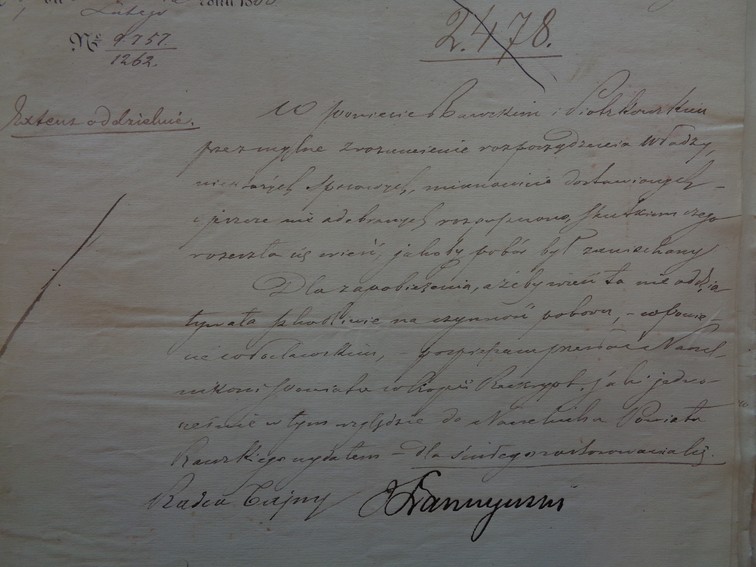 Lutego
№ 9757
1262.
2.478.
Extens oddzielnie.
W powiecie Rawskim i Piotrkowskim
przez mylne zrozumienie rozporządzenia Władzy,
spisowych, mianowicie dostawionych
i jeszcze nie odebranych rozpuszczono, skutkiem czego
rozeszła się wieść, jakoby pobór był zaniechany
Dla zapobieżenia, ażeby wieść ta nie oddzia-
ływała szkodliwie na czynność poboru, – w Powie-
cie Włocławskim, – przesłać Naczel-
nikowi Powiatu w kopii Reskrypt, jaki jedno-
cześnie w tym względzie do Naczelnika Powiatu
Rawskiego wydałem – dla ścisłego zastosowania się.
Radca Tajny